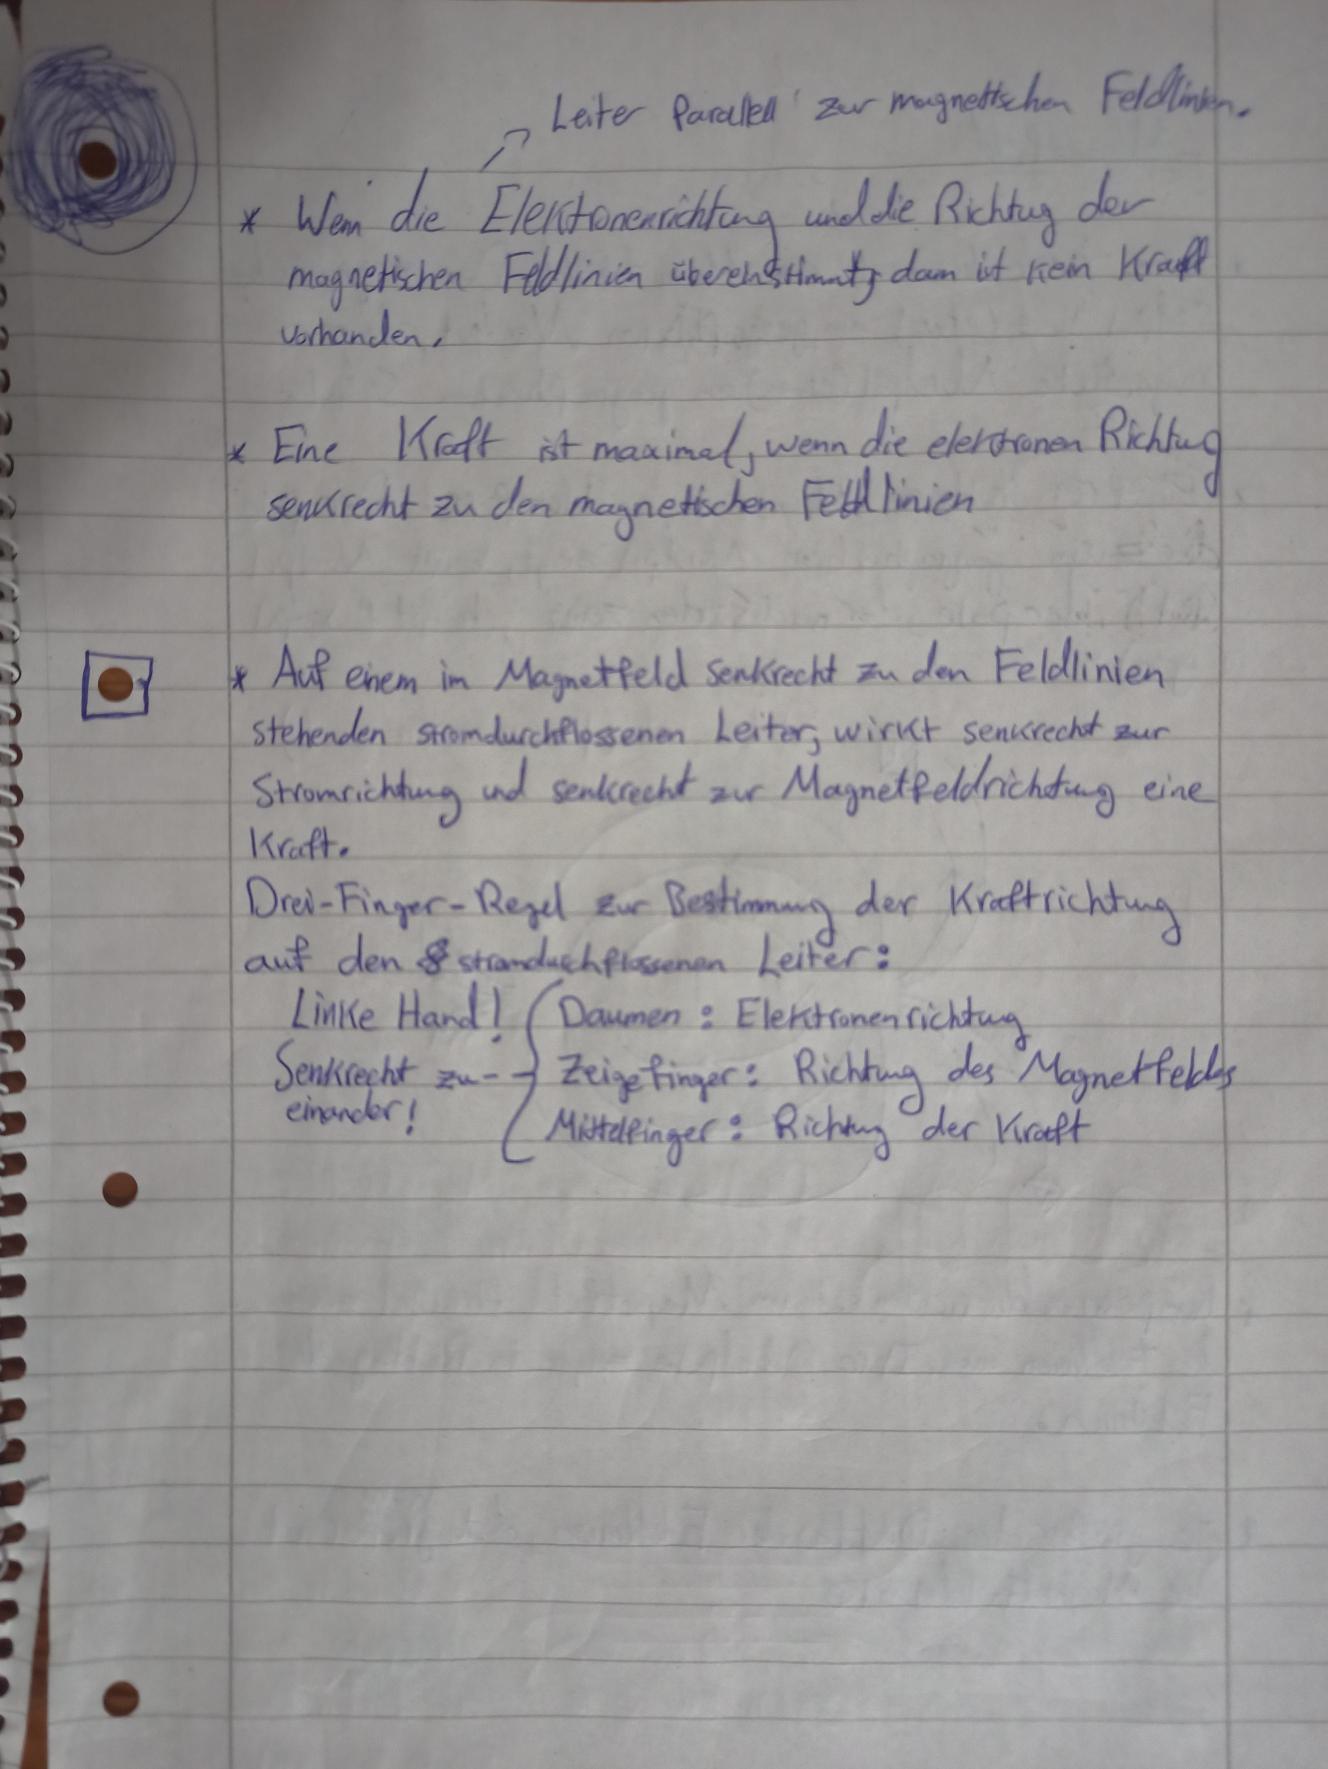 Leiter Parallell zur magnetischen Feldlinien.
* Wenn die Elektronenrichtung und die Richtug der
magnetischen Feldlinien übereinstimmt, dann ist kein Kraft
vorhanden.
* Eine Kraft ist maximal, wenn die elektronen Richtug
senkrecht zu den magnetischen Feldlinien
* Auf einem im Magnetfeld senkrecht zu den Feldlinien
stehenden stromdurchflossenen Leiter, wirkt senkrecht zur
Stromrichtung und senkrecht zur Magnetfeldrichtung eine
Kraft.
Drei-Finger-Regel zur Bestimmung der Kraftrichtung
auf den stromduchflossenen Leiter:
Linke Hand! Daumen: Elektronenrichtung
Senkrecht zu-- Zeigefinger: Richtung des Magnetfeldes
einander!
Mittelfinger: Richtug der Kraft